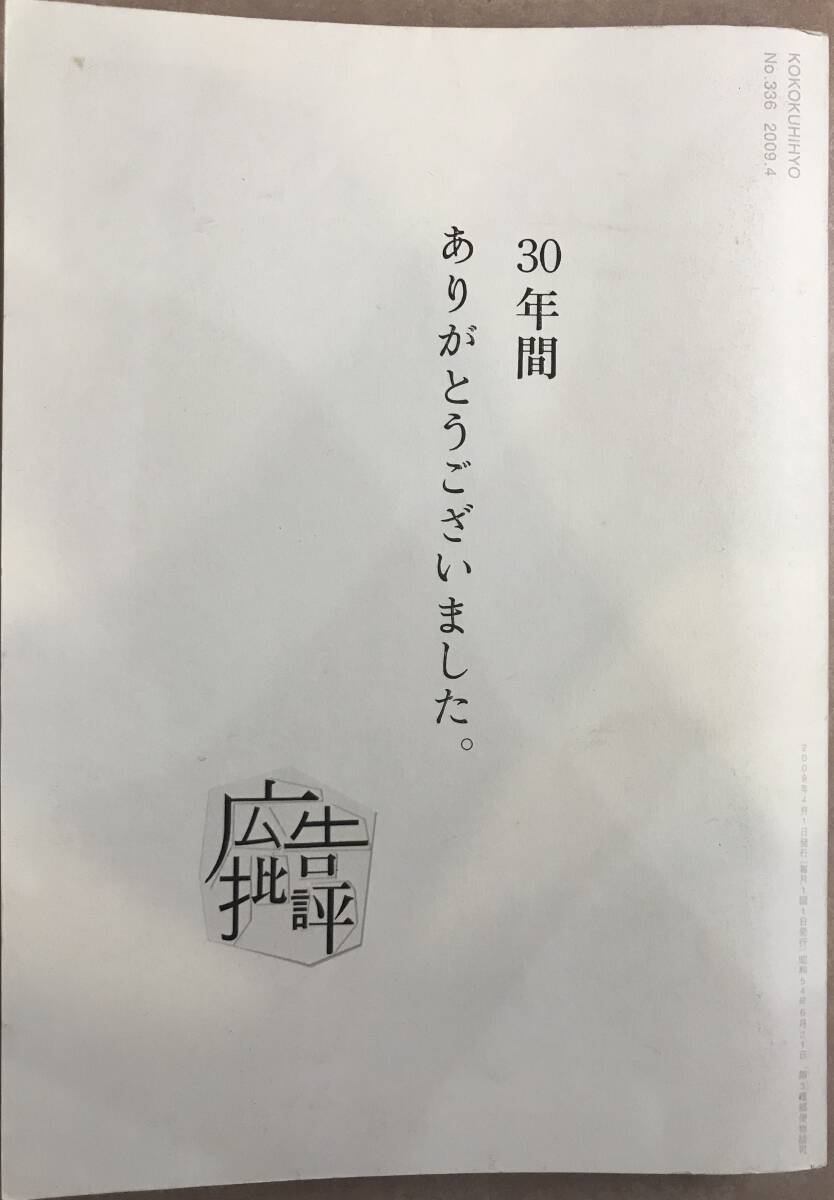 KOKOKUHiHYO
No.336 2009.4
30年間
ありがとうございました。
広告
批評
2009年4月1日発行(毎月1回1日発行) 昭和54年6月21日 第3種郵便物認可